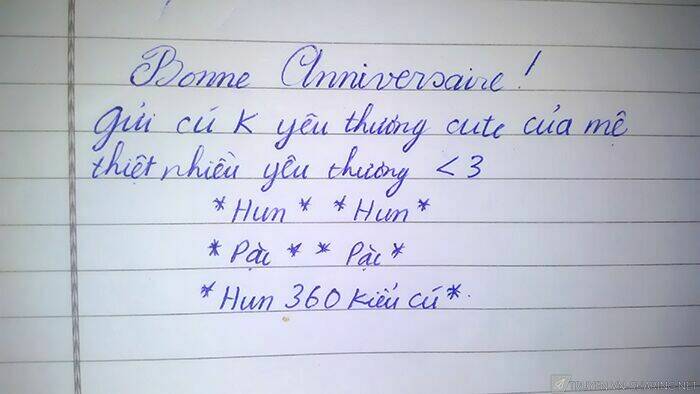 Bonne Anniversaire!
Gửi cú K yêu thương cute của mệ
thiệt nhiều yêu thương <3
*Hun* *Hun*
*Pặc* *Pặc*
*Hun 360 kiểu cú*.
TRUYEN.VN-SHARING.NET